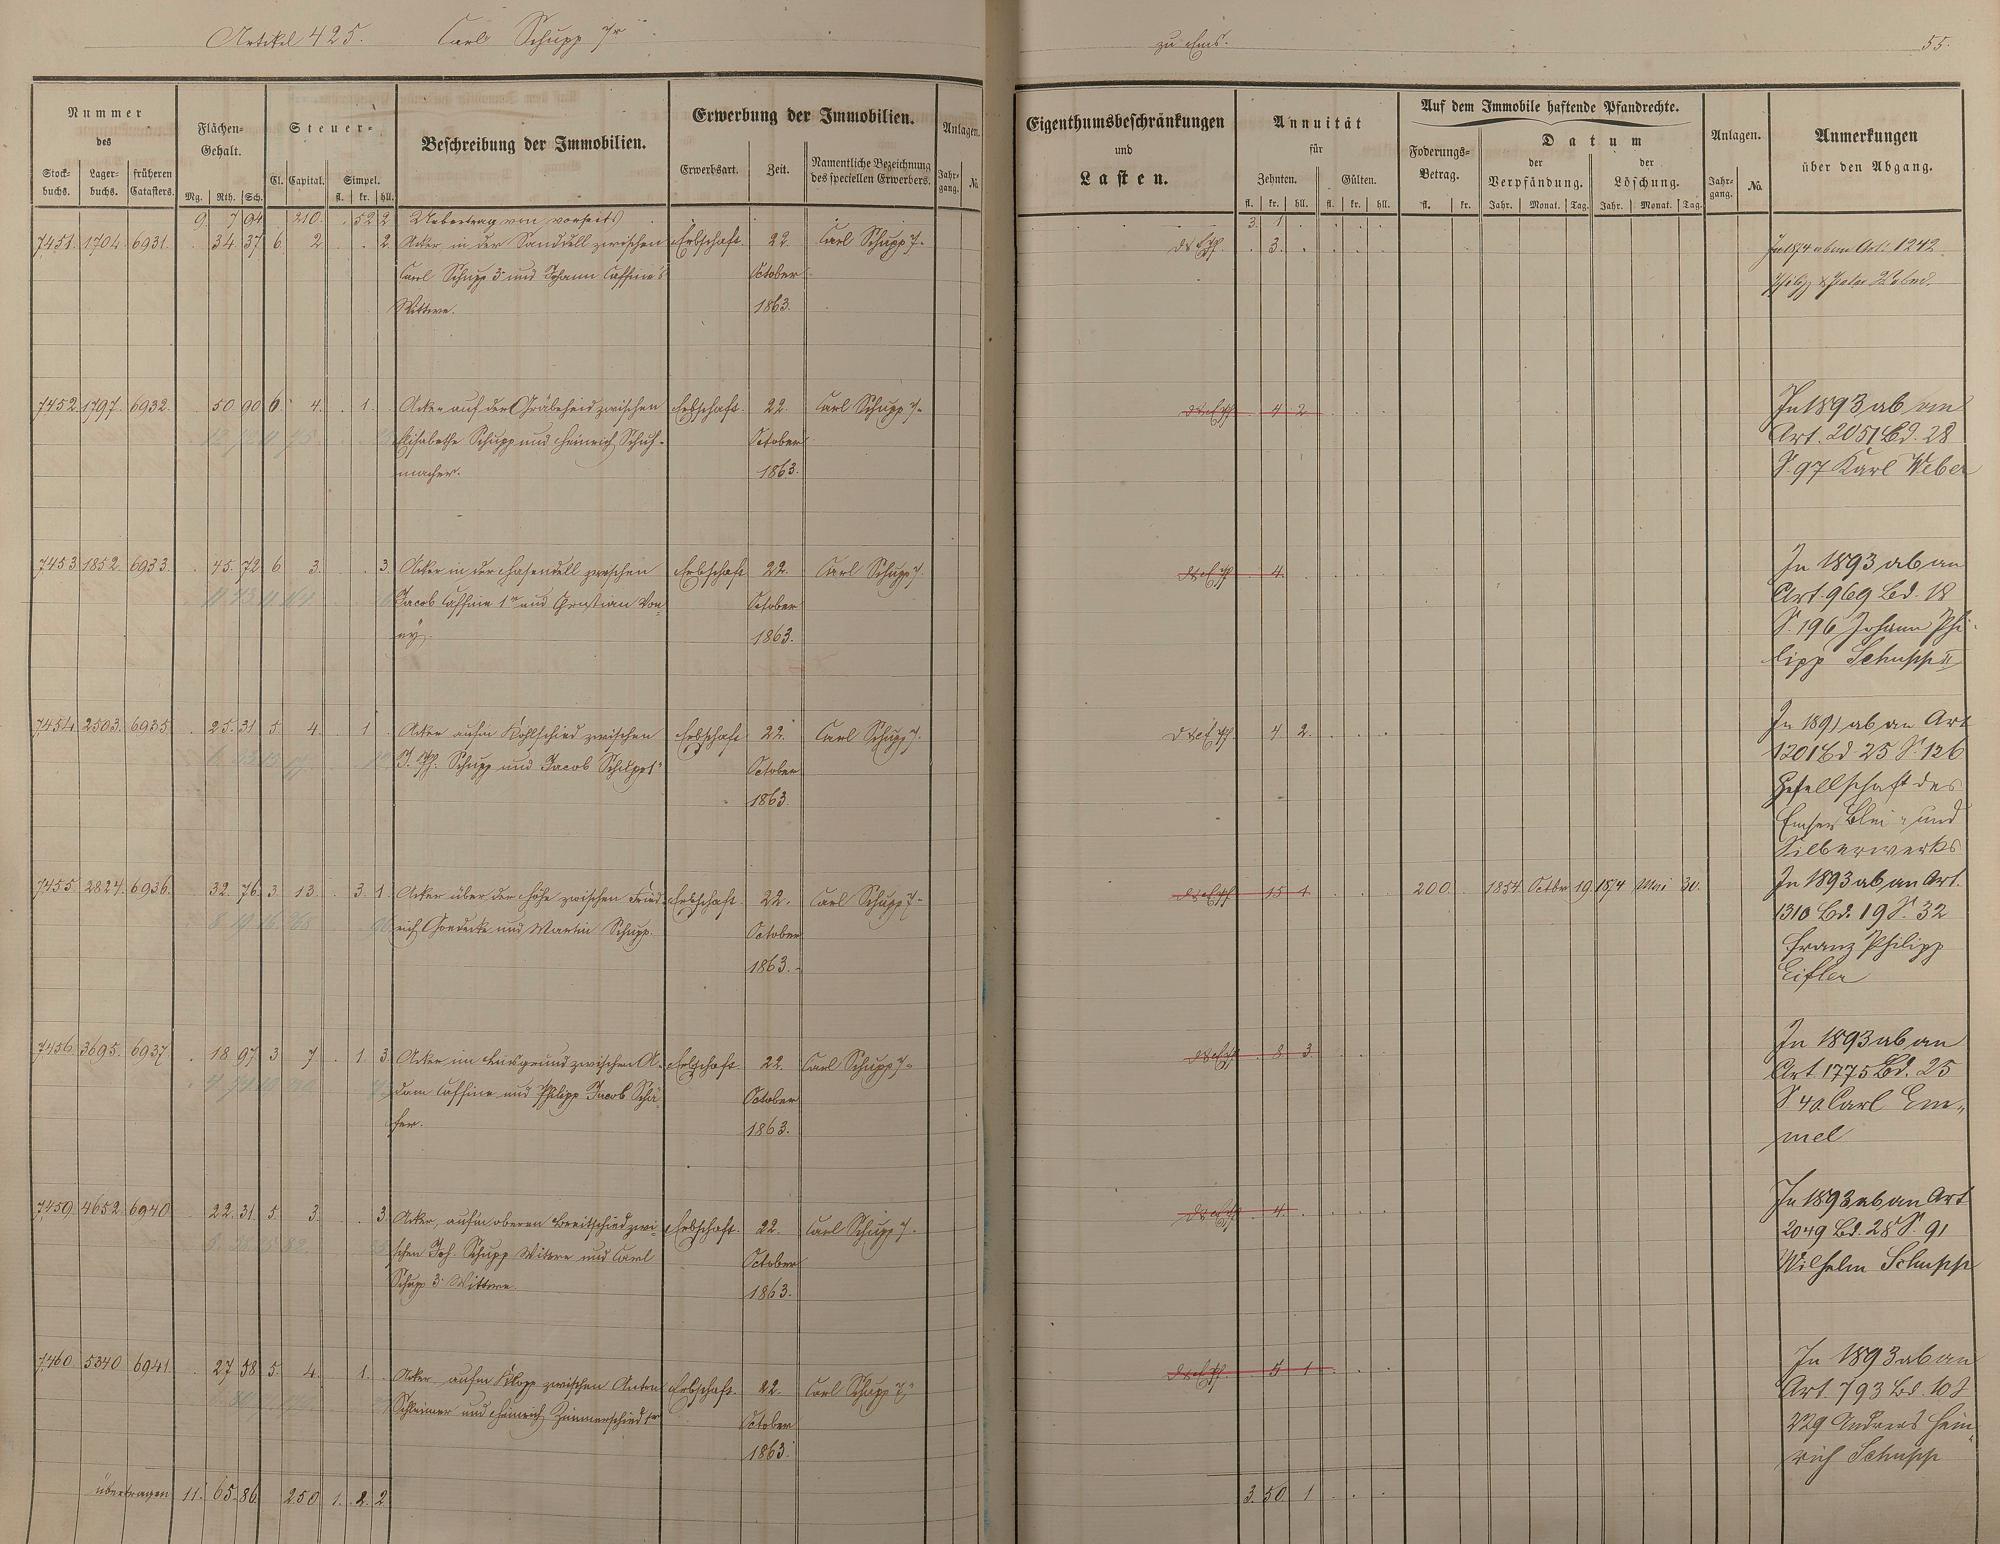 Artikel 425. Carl Schupp 7r zu Ems. 55.
Nummer
des
Stock-buchs. Lager-buchs. früheren Catasters.
Flächen-Gehalt.
Mg. Rth. Sch.
Steuer-
Cl. Capital. Simpel.
fl. kr. hll.
Beschreibung der Immobilien.
Erwerbung der Immobilien.
Erwerbsart. Zeit. Namentliche Bezeichnung des speciellen Erwerbers.
Anlagen.
Jahr-gang. No.
Eigenthumsbeschränkungen
und
Lasten.
Annuität
für
Zehnten. Gülten.
fl. kr. hll. fl. kr. hll.
Auf dem Immobile haftende Pfandrechte.
Foderungs-Betrag.
fl. kr.
Datum
der Verpfändung. der Löschung.
Jahr. Monat. Tag. Jahr. Monat. Tag.
Anlagen.
Jahr-gang. No.
Anmerkungen
über den Abgang.
9. 7 94 210. 52 2 Uebertrag von vorseits 3. 1
7451. 1704. 6931. 34 37 6 2 . . 2. Acker in der Sanddell zwischen Erbschaft. 22. Carl Schupp 7r 3. In 1874 ab an Art. 1242
Carl Schupp 3r und Johann Caffine's October
Wittwe. 1863.
7452. 1797. 6932. 50 90 6 4. 1. Acker auf der Gräbeheid zwischen Erbschaft. 22. Carl Schupp 7r 4 2 In 1893 ab an
Elisabethe Schupp und Heinrich Schuh- October Art. 2051 Bd. 28
macher. 1863. S. 97 Karl Weber
7453 1852. 6933. 45. 72 6 3. 3. Acker in der Hasendell zwischen Erbschaft 22. Carl Schupp 7. 4. In 1893 ab an
Jacob Caffine 1r und Christian Von- October Art. 969 Bd. 18
ey. 1863. S. 196 Johann Phi-
lipp Schupp II
7454 2503. 6935 25. 31 5. 4. 1 Acker aufm Kohlschied zwischen Erbschaft 22. Carl Schupp 7. 4 2. In 1891 ab an Art
J. Ph. Schupp und Jacob Schupp 1r October 1201 Bd 25 S. 126
1863. Gesellschaft des
Emser Blei- und
Silberwerks
7455 2824. 6936. 32. 76. 3. 13. 3. 1. Acker über der Höhe zwischen Fried- Erbschaft. 22. Carl Schupp 7r 15 1 200. 1854. Octbr 19. 1874 Mai 30. In 1893 ab an Art.
rich Goedecke und Martin Schupp. October 1310 Bd. 19 S. 32
1863. Franz Philipp
Eifler
7456 3695. 6937. 18 97. 3 7 1. 3. Acker im Linsgrund zwischen A- Erbschaft 22. Carl Schupp 7r 8 3. In 1893 ab an
dam Caffine und Philipp Jacob Schä- October Art. 1775 Bd. 25
fer. 1863. S 40. Carl Em-
mel
7459 4652. 6940 22. 31. 5. 3 3 Acker, aufm oberen Breitschied zwi- Erbschaft. 22. Carl Schupp 7r 4. In 1893 ab an Art
schen Joh. Schupp Wittwe und Carl October 2049 Bd. 28 S. 91
Schupp 3r Wittwe. 1863. Wilhelm Schupp
7460 5340 6941. 27 58 5. 4. 1. Acker aufm Klopp zwischen Anton Erbschaft. 22. Carl Schupp 7r 5 1 In 1893 ab an
Schleimer und Heinrich Zimmerschied 1r October Art. 793 Bd. 10 S
1863. 229 Andreas Hein-
rich Schupp
übertragen 11. 65. 86. 250 1. 2. 2. 3. 50 1